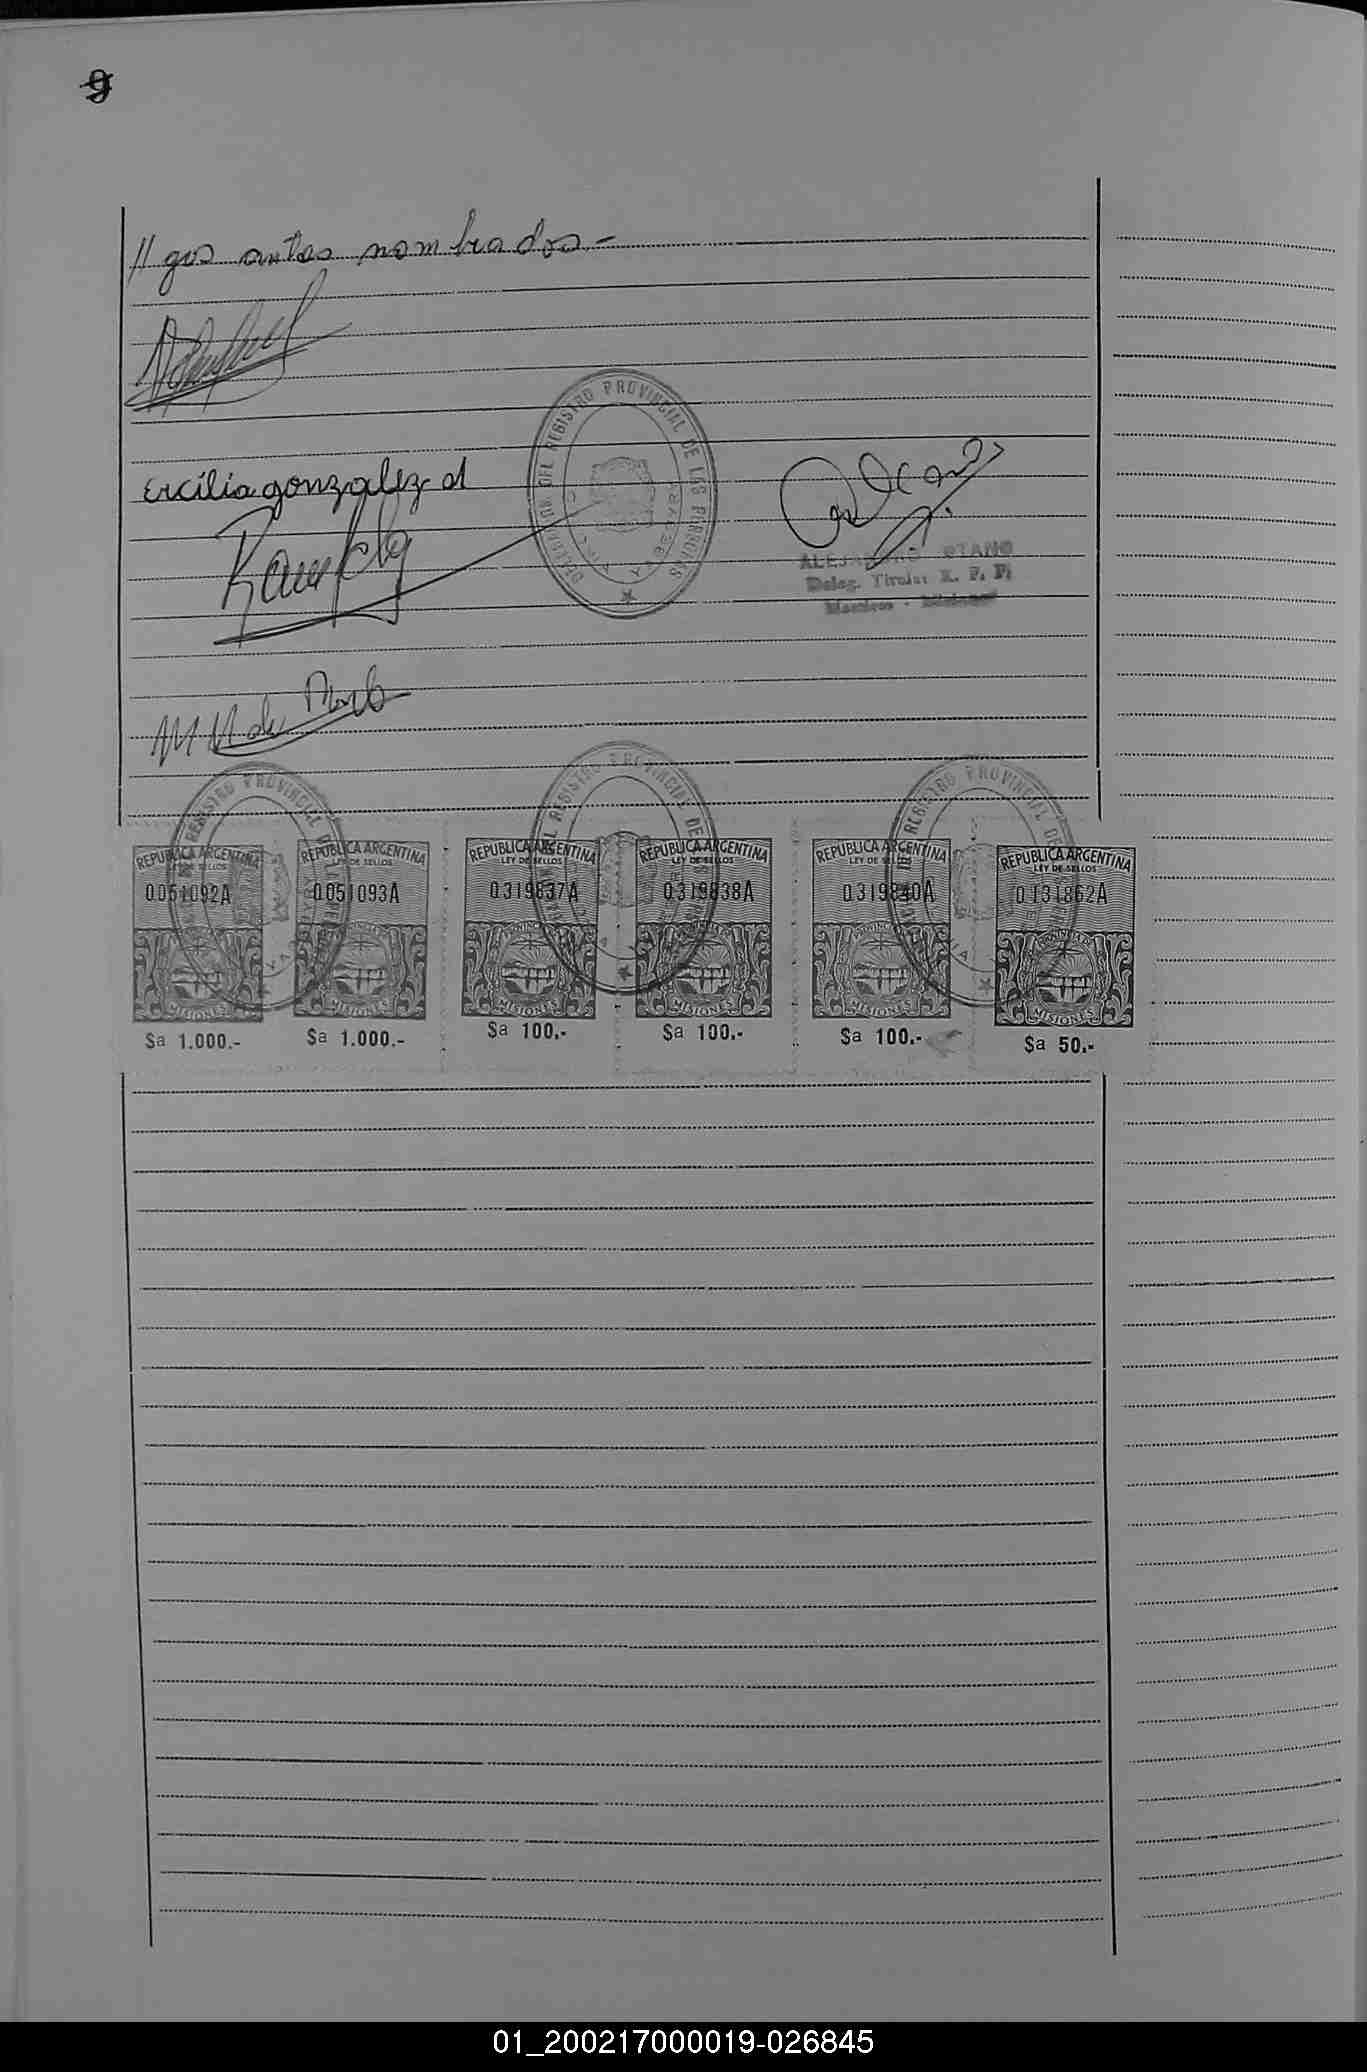 9
// gos antes nombrados.-
Ercilia gonzalez d
DEL REGISTRO PROVINCIAL DE LAS PERSONAS
Deleg. Titular R. P. P.
REPUBLICA ARGENTINA
LEY DE SELLOS
0051092A
MISIONES
$a 1.000.-
REPUBLICA ARGENTINA
LEY DE SELLOS
0051093A
MISIONES
$a 1.000.-
REPUBLICA ARGENTINA
LEY DE SELLOS
0319837A
MISIONES
$a 100.-
REPUBLICA ARGENTINA
LEY DE SELLOS
0319838A
MISIONES
$a 100.-
REPUBLICA ARGENTINA
LEY DE SELLOS
0319840A
MISIONES
$a 100.-
REPUBLICA ARGENTINA
LEY DE SELLOS
0131862A
MISIONES
$a 50.-
01_200217000019-026845